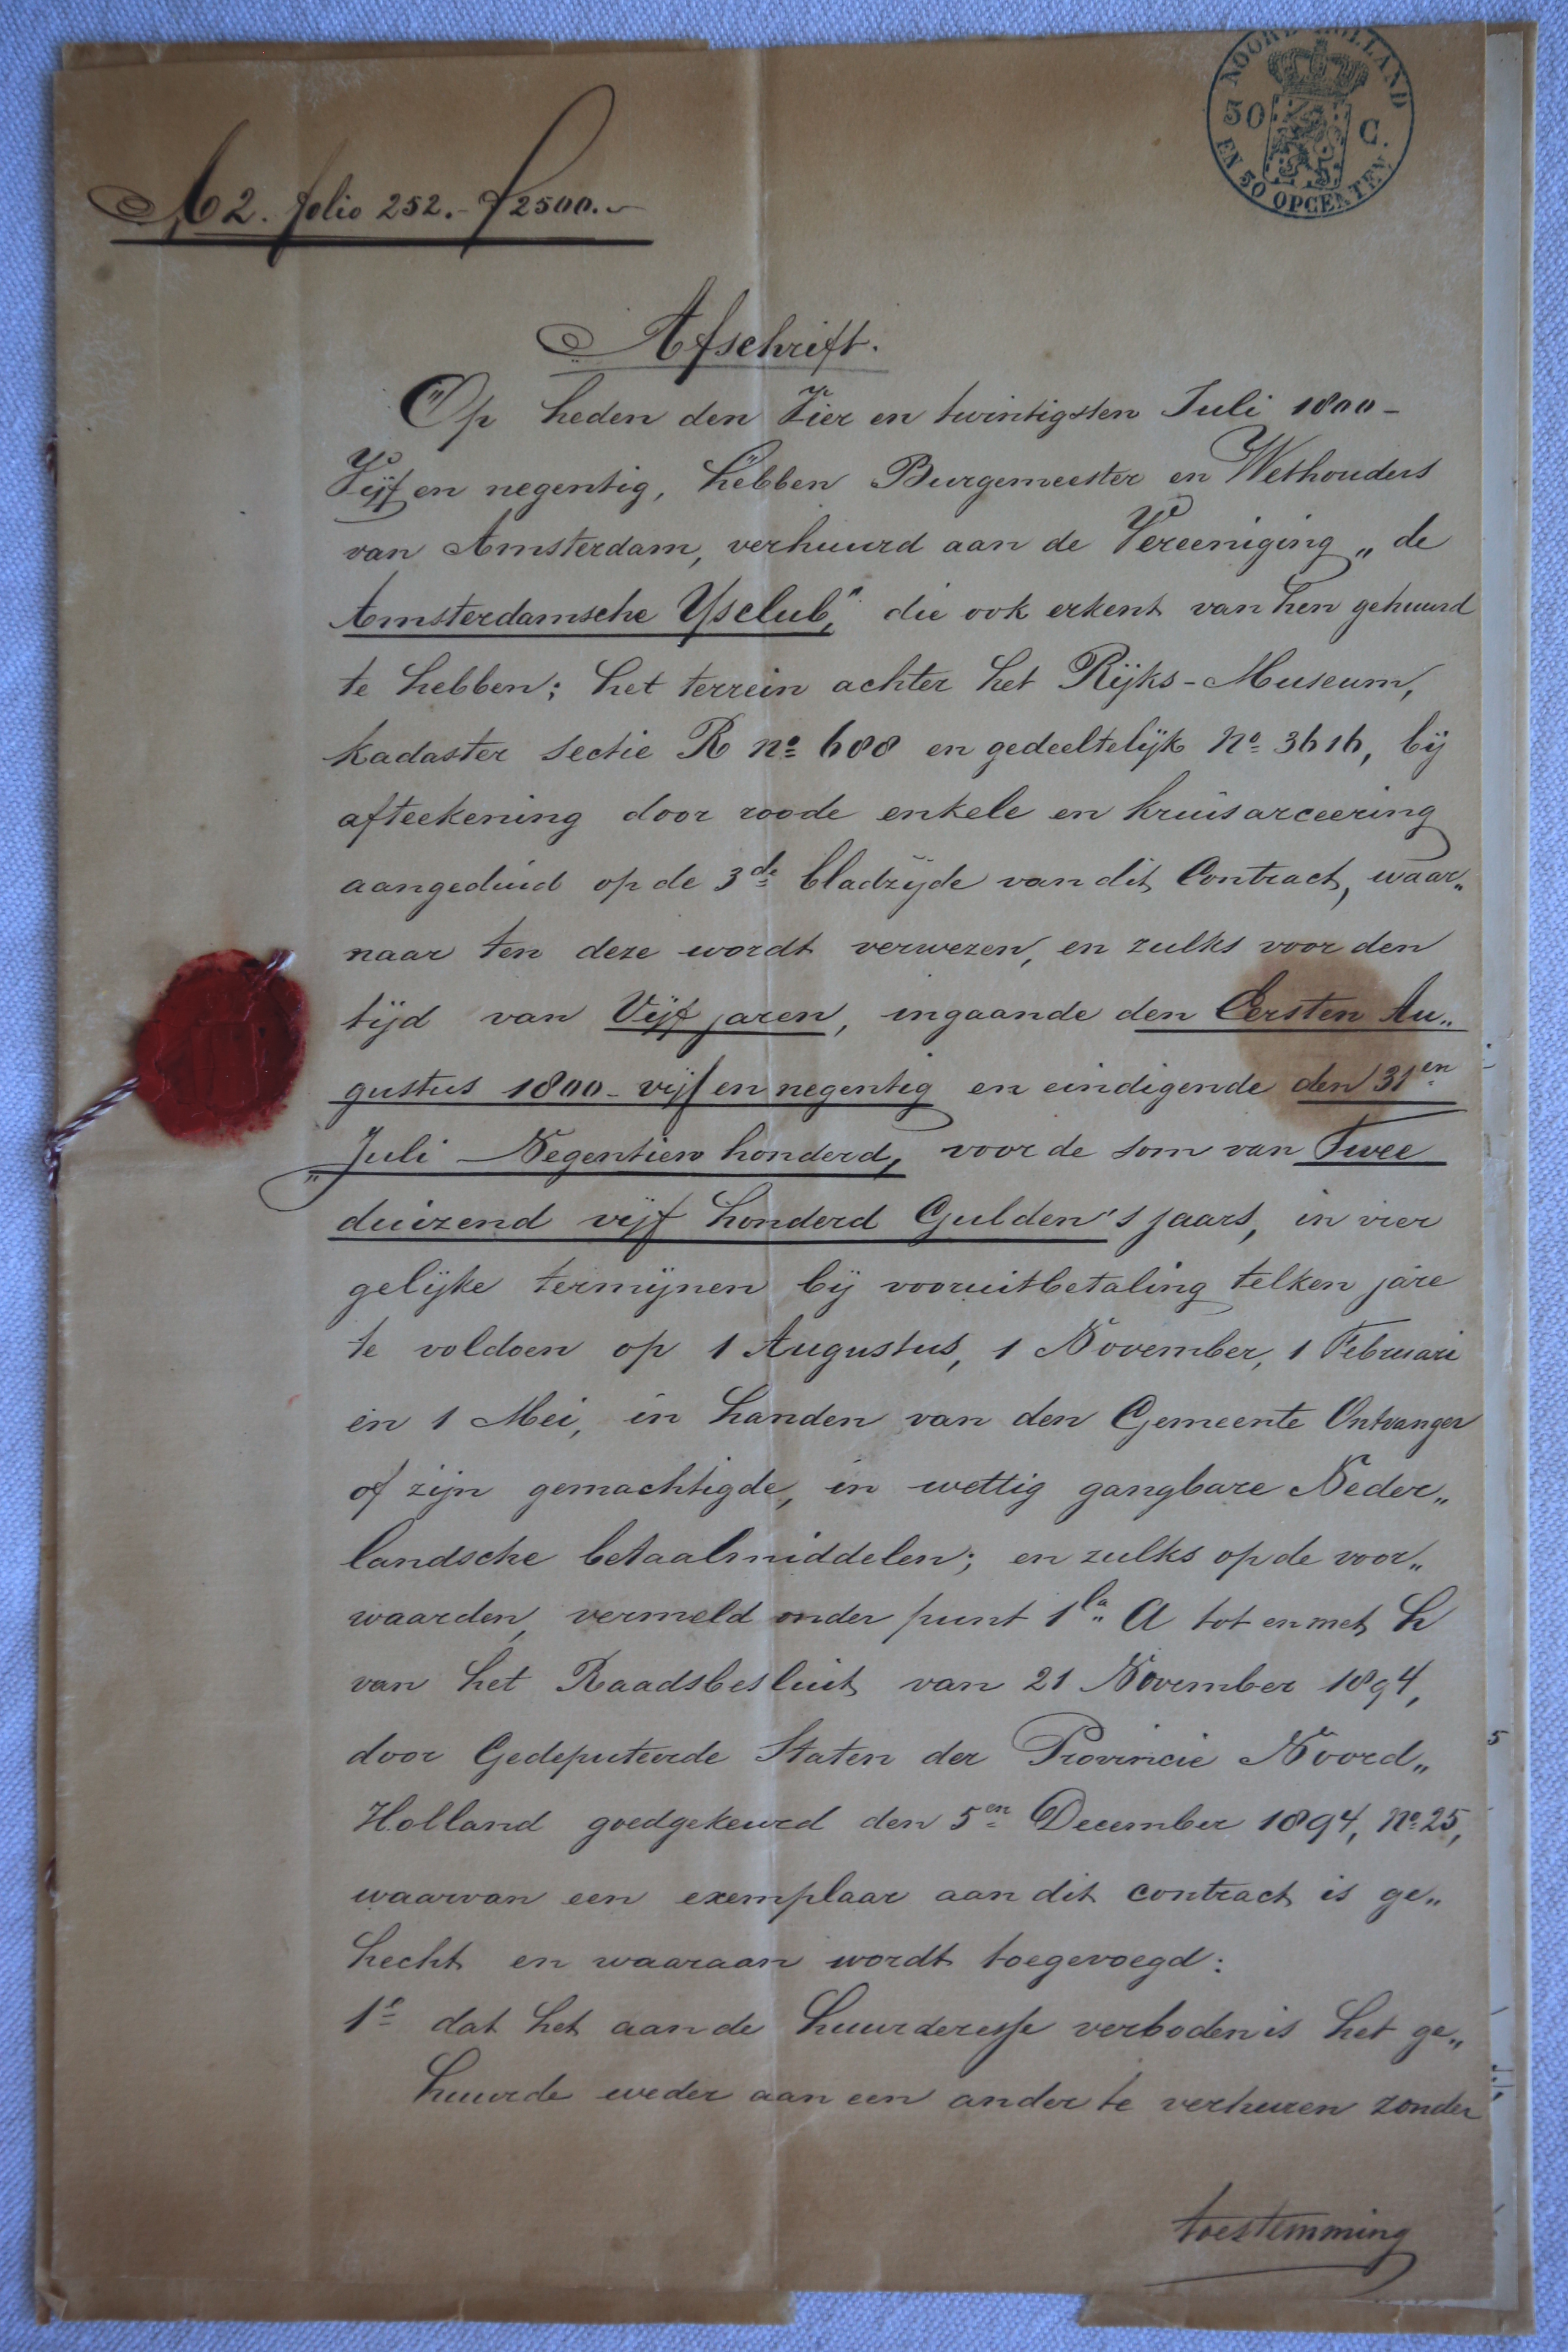 NOORD-HOLLAND
50 C.
EN 50 OPCENTEN
A 2. folio 252.- f 2500.-
Afschrift.
Op heden den Vier en twintigsten Juli 1800-
Vijf en negentig, hebben Burgemeester en Wethouders
van Amsterdam, verhuurd aan de Vereeniging „de
Amsterdamsche IJsclub," die ook erkent van hen gehuurd
te hebben; het terrein achter het Rijks-Museum,
kadaster sectie R no 688 en gedeeltelijk No 3616, bij
afteekening door roode enkele en kruisarceering
aangeduid op de 3de bladzijde van dit Contract, waar„
naar ten deze wordt verwezen, en zulks voor den
tijd van Vijf jaren, ingaande den Eersten Au„
gustus 1800-vijf en negentig en eindigende den 31en
„Juli Negentien honderd, voor de som van Twee
duizend vijf honderd Gulden 's jaars, in vier
gelijke termijnen bij vooruitbetaling telken jare
te voldoen op 1 Augustus, 1 November, 1 Februari
en 1 Mei, in handen van den Gemeente Ontvanger
of zijn gemachtigde, in wettig gangbare Neder„
landsche betaalmiddelen; en zulks op de voor„
waarden, vermeld onder punt 1 la A tot en met h
van het Raadsbesluit van 21 November 1894,
door Gedeputeerde Staten der Provincie Noord„
Holland goedgekeurd den 5en December 1894, No 25,
waarvan een exemplaar aan dit contract is ge„
hecht en waaraan wordt toegevoegd:
1o dat het aan de huurderesse verboden is het ge„
huurde weder aan een ander te verhuren zonder
toestemming